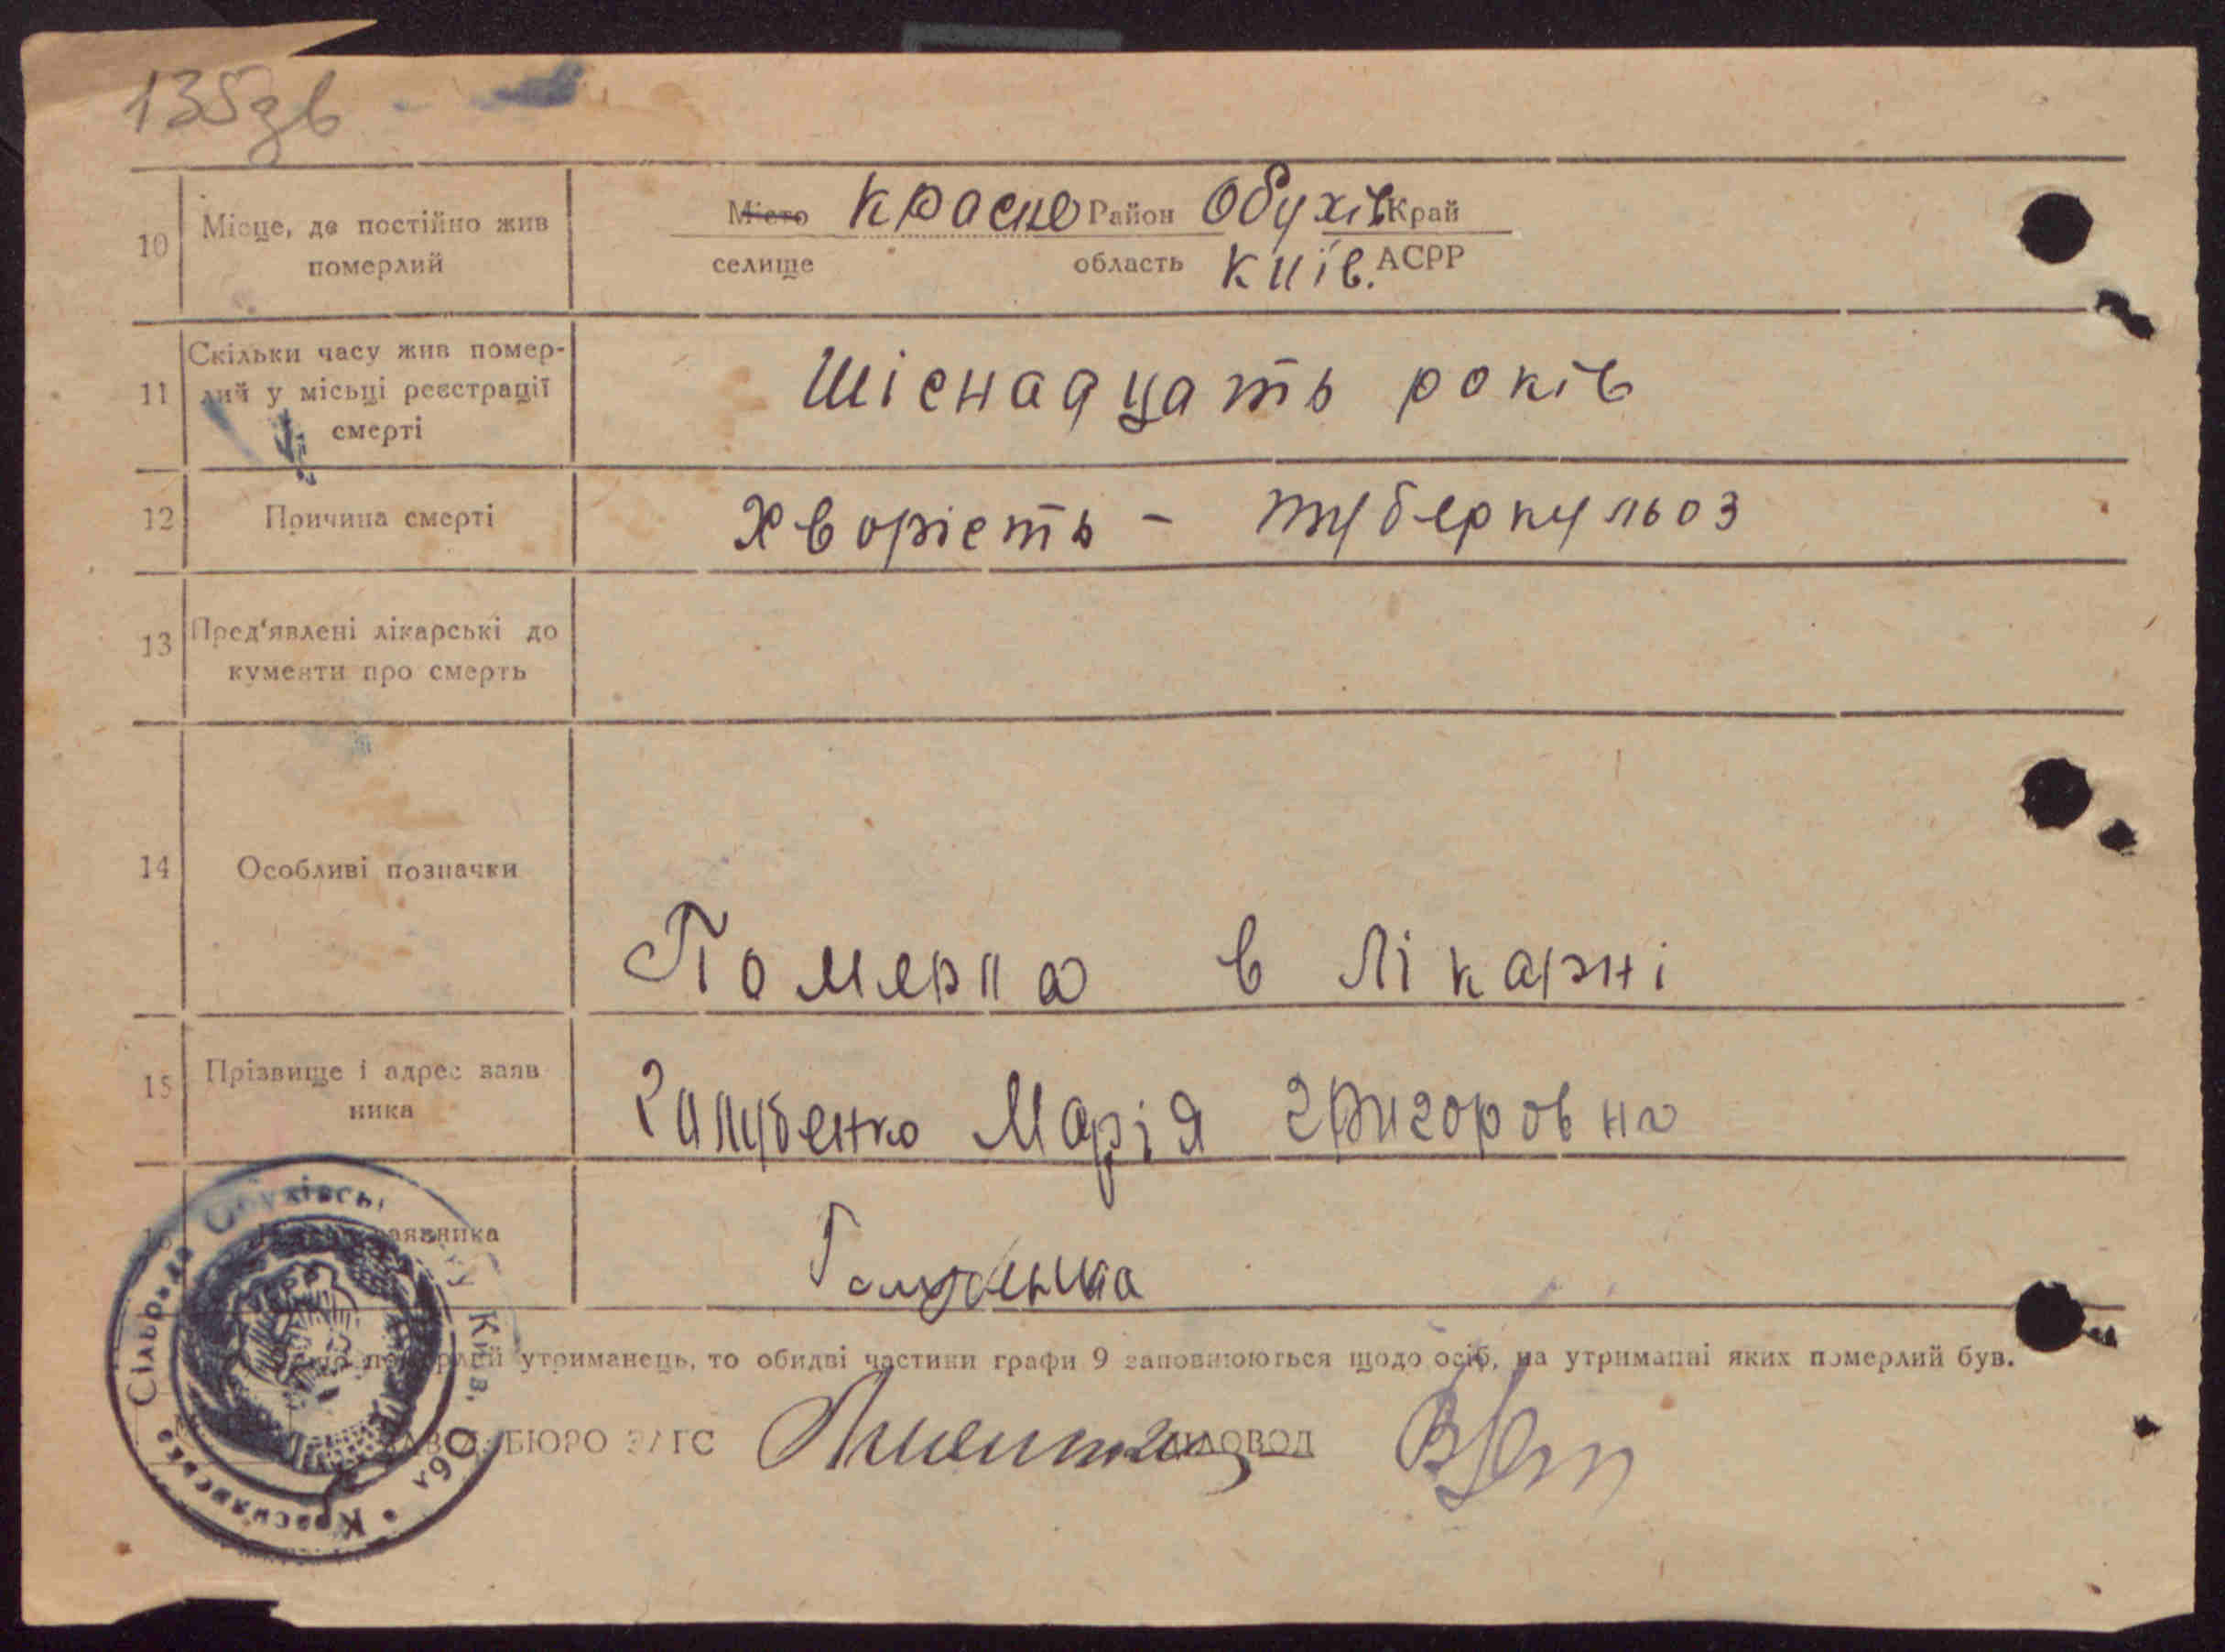 135зв
10 Місце, де постійно жив померлий
Місто Красне Район Обухів Край
селище область Київ. АСРР
11 Скільки часу жив помер-
лий у місьці реєстрації
смерті
Шіснадцать років
12 Причина смерті
Хворість - туберкульоз
13 Пред'явлені лікарські до
кументи про смерть
14 Особливі позначки
Померла в лікарні
15 Прізвище і адрес заяв
ника
Галубенко Марія Григоровна
заявника
утриманець, то обидві частини графи 9 заповнюються щодо осіб, на утриманні яких померлий був.
БЮРО ЗАГС
ДІЛОВОД
Краснянська Сільрада Обухівськ Київ. Обл